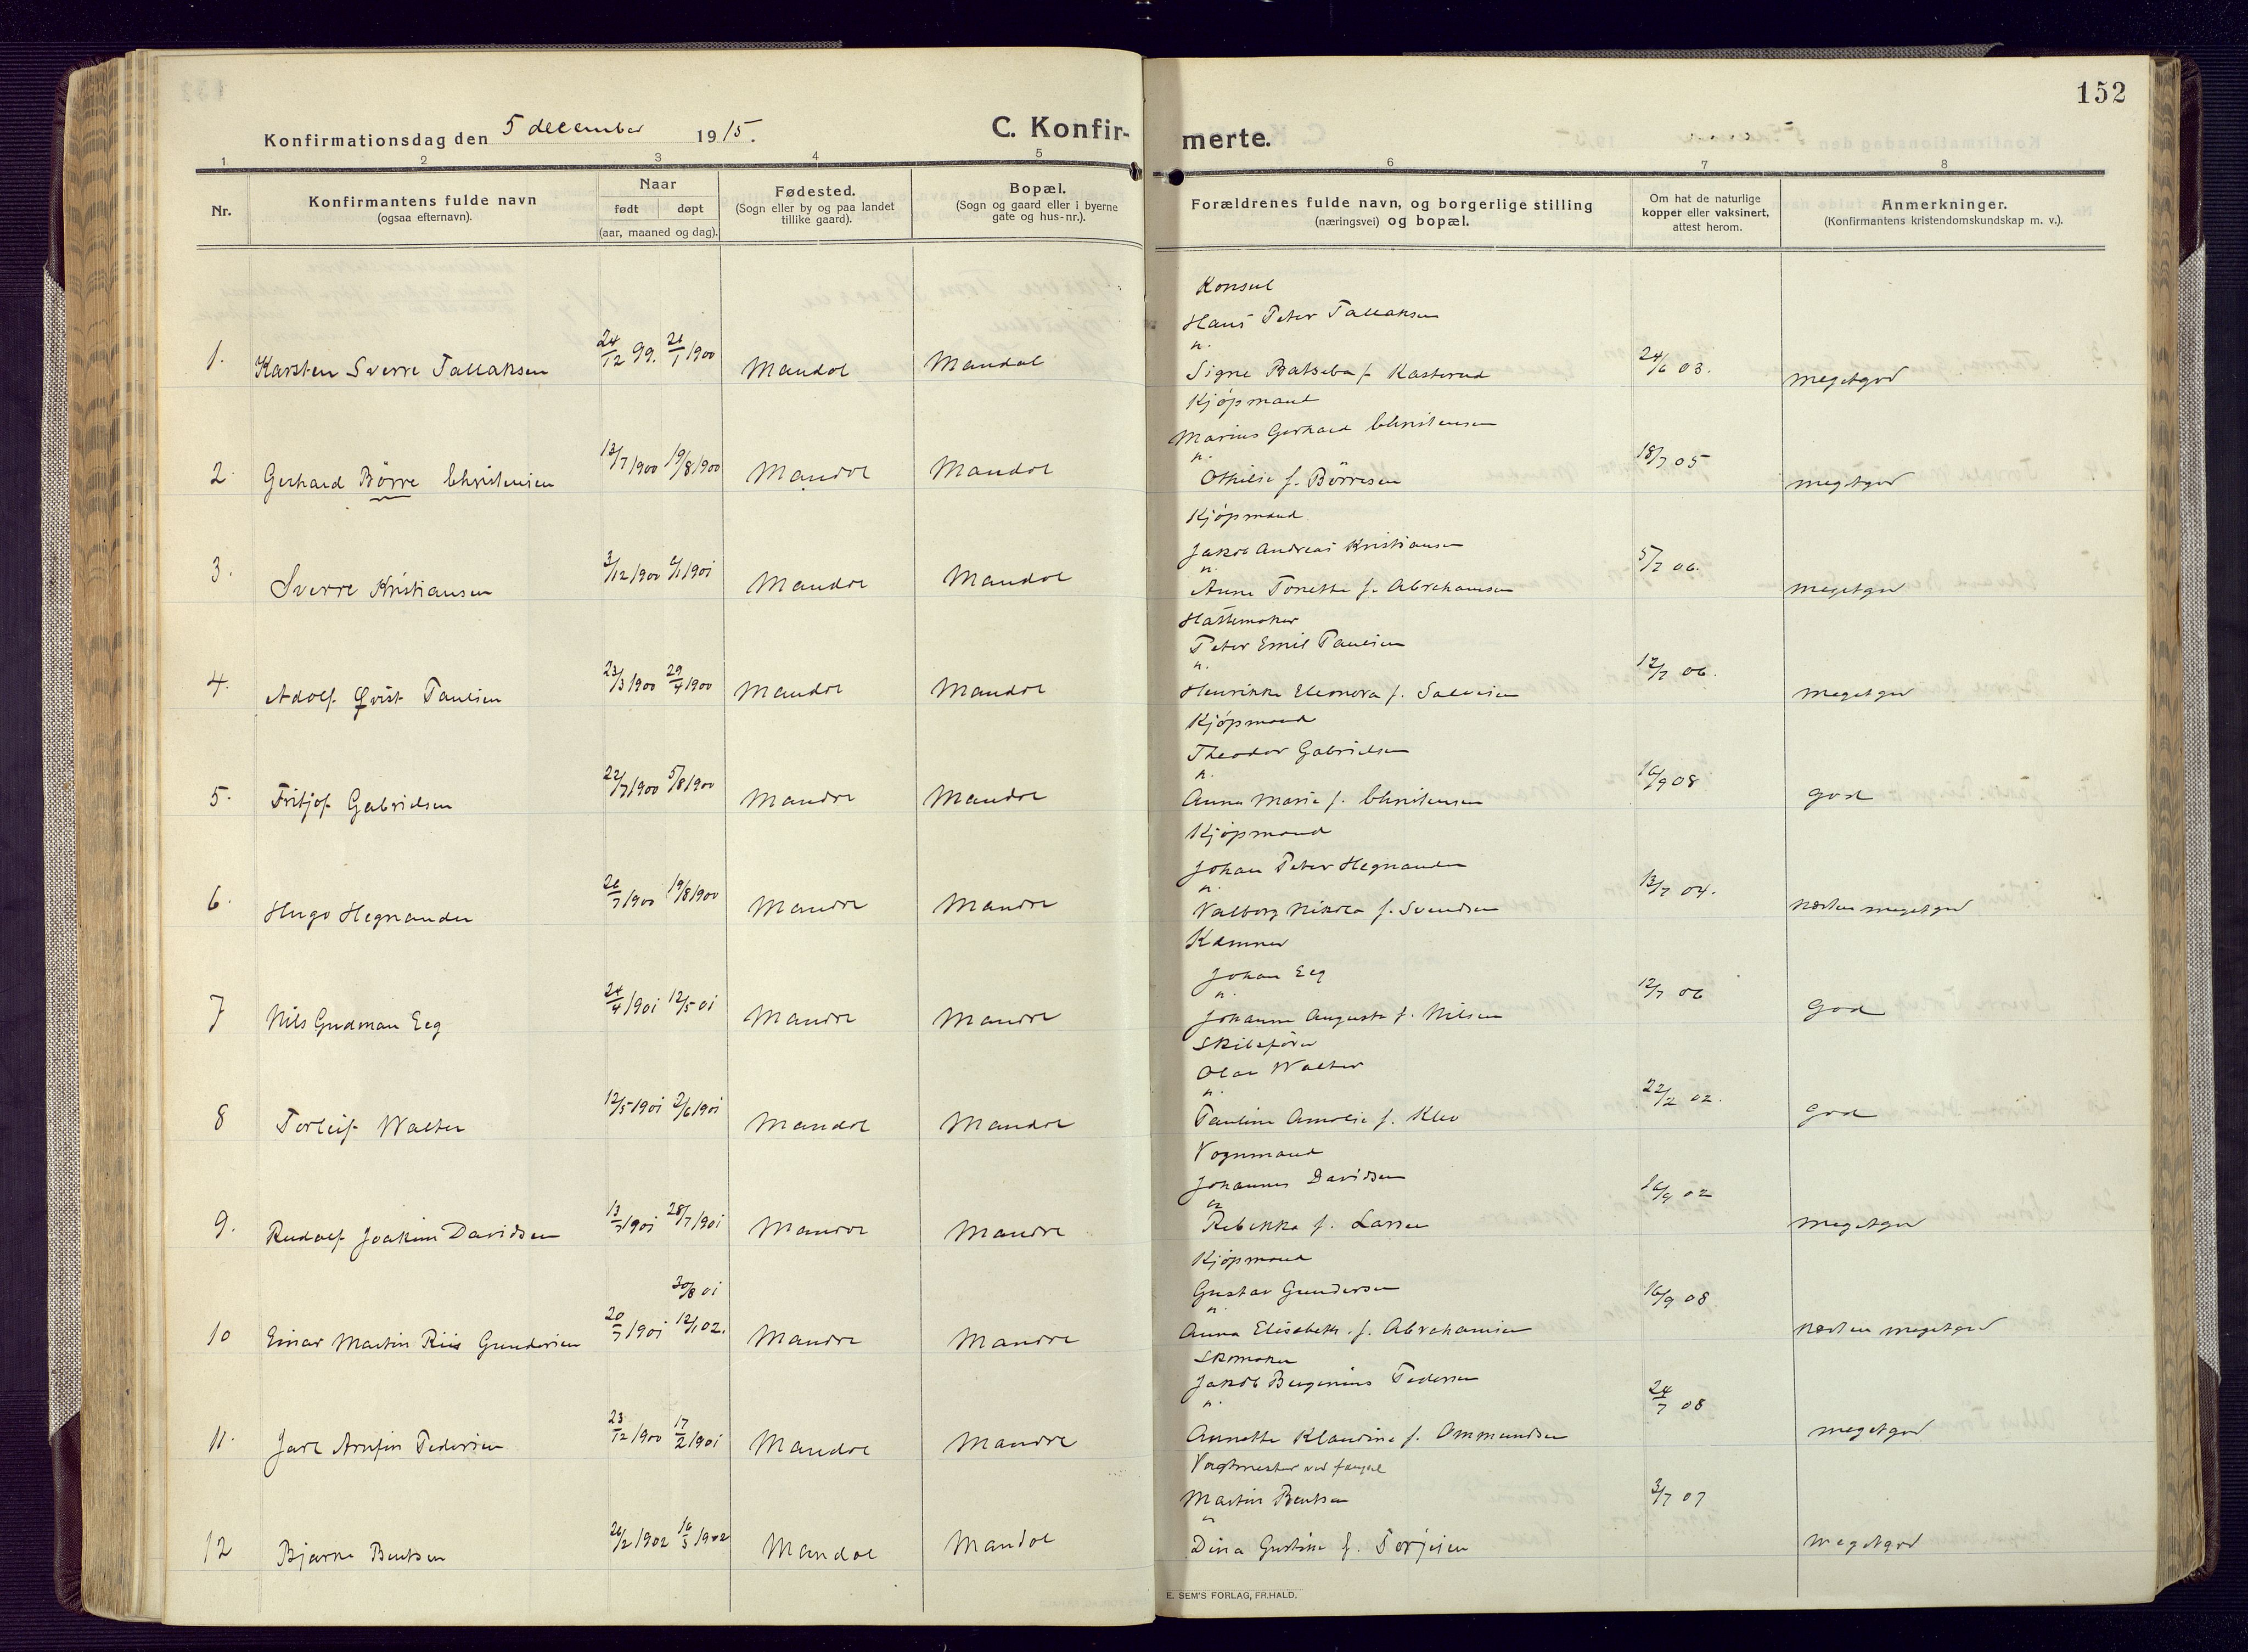 152
Konfirmationsdag den 5 december 1915.
C. Konfirmerte.
1 2 3 4 5 6 7 8
Nr.
Konfirmantens fulde navn
(ogsaa efternavn).
Naar
født døpt
(aar, maaned og dag).
Fødested.
(Sogn eller by og paa landet
tillike gaard).
Bopæl.
(Sogn og gaard eller i byerne
gate og hus-nr.).
Forældrenes fulde navn, og borgerlige stilling
(næringsvei) og bopæl.
Om hat de naturlige
kopper eller vaksinert,
attest herom.
Anmerkninger.
(Konfirmantens kristendomskundskap m. v.).
Konsul
Hans Peter Tallaksen
n.
1. Karsten Sverre Tallaksen 24/12 99. 1900 Mandal Mandal Signe Batseba f. Kasterud 24/6 03. megetgod
Kjøpmand
Marius Gerhard Christensen
n.
2. Gerhard Börre Christensen 13/7 1900 19/8 1900 Mandal Mandal Othilie f. Börresen 18/7 05 megetgod
Kjøpmand
Jakob Andreas Kristiansen
n.
3. Sverre Kristiansen 3/12 1900 1901 Mandal Mandal Anne Tonette f. Abrahamsen 5/7 06. megetgod
Hattemaker
Peter Emil Paulsen
n.
4. Adolf Qvist Paulsen 23/3 1900 29/4 1900 Mandal Mandal Henrikke Eleonora f. Salvesen 12/7 06. megetgod
Kjøpmand
Theodor Gabrielsen
n.
5. Fritjof Gabrielsen 22/7 1900 5/8 1900 Mandal Mandal Anna Marie f. Christensen 16/9 08 god
Kjøpmand
Johan Peter Hegnander
n.
6. Hugo Hegnander 26/7 1900 19/8 1900 Mandal Mandal Valborg Nikolea f. Svendsen 13/7 04. næsten megetgod
Kæmner
Johan Eeg
n.
7 Nils Gudman Eeg 24/4 1901 12/5 01 Mandal Mandal Johanne Auguste f. Nilsen 12/7 06 God
Skibsfører
Olai Walter
n.
8 Torleif Walter 12/5 1901 2/6 1901 Mandal Mandal Pauline Amalie f. Klev 22/2 02. God
Vognmand
Johannes Davidsen
9. Rudolf Joakim Davidsen 13/7 1901 28/7 1901 Mandal Mandal Rebekka f. Larsen 16/9 02 megetgod
Kjøpmand
30/8 01 Gustav Gundersen
n.
10 Einar Martin Riis Gundersen 20/7 1901 12/1 02. Mandal Mandal Anna Elisabeth f. Abrahamsen 16/9 08 næsten megetgod
Skomaker
Jakob Bergenius Pedersen
n.
11. Jarl Arnfin Pedersen 23/12 1900 17/2 1901 Mandal Mandal Annette Klaudine f. Ommundsen 24/7 08 megetgod
Vagtmester ved fængsel
Martin Bentsen
12 Bjarne Bentsen 26/2 1902 16/5 1902 Mandal Mandal Dina Gustine f. Torjesen 3/7 07 megetgod
E. SEM'S FORLAG, FR.HALD.